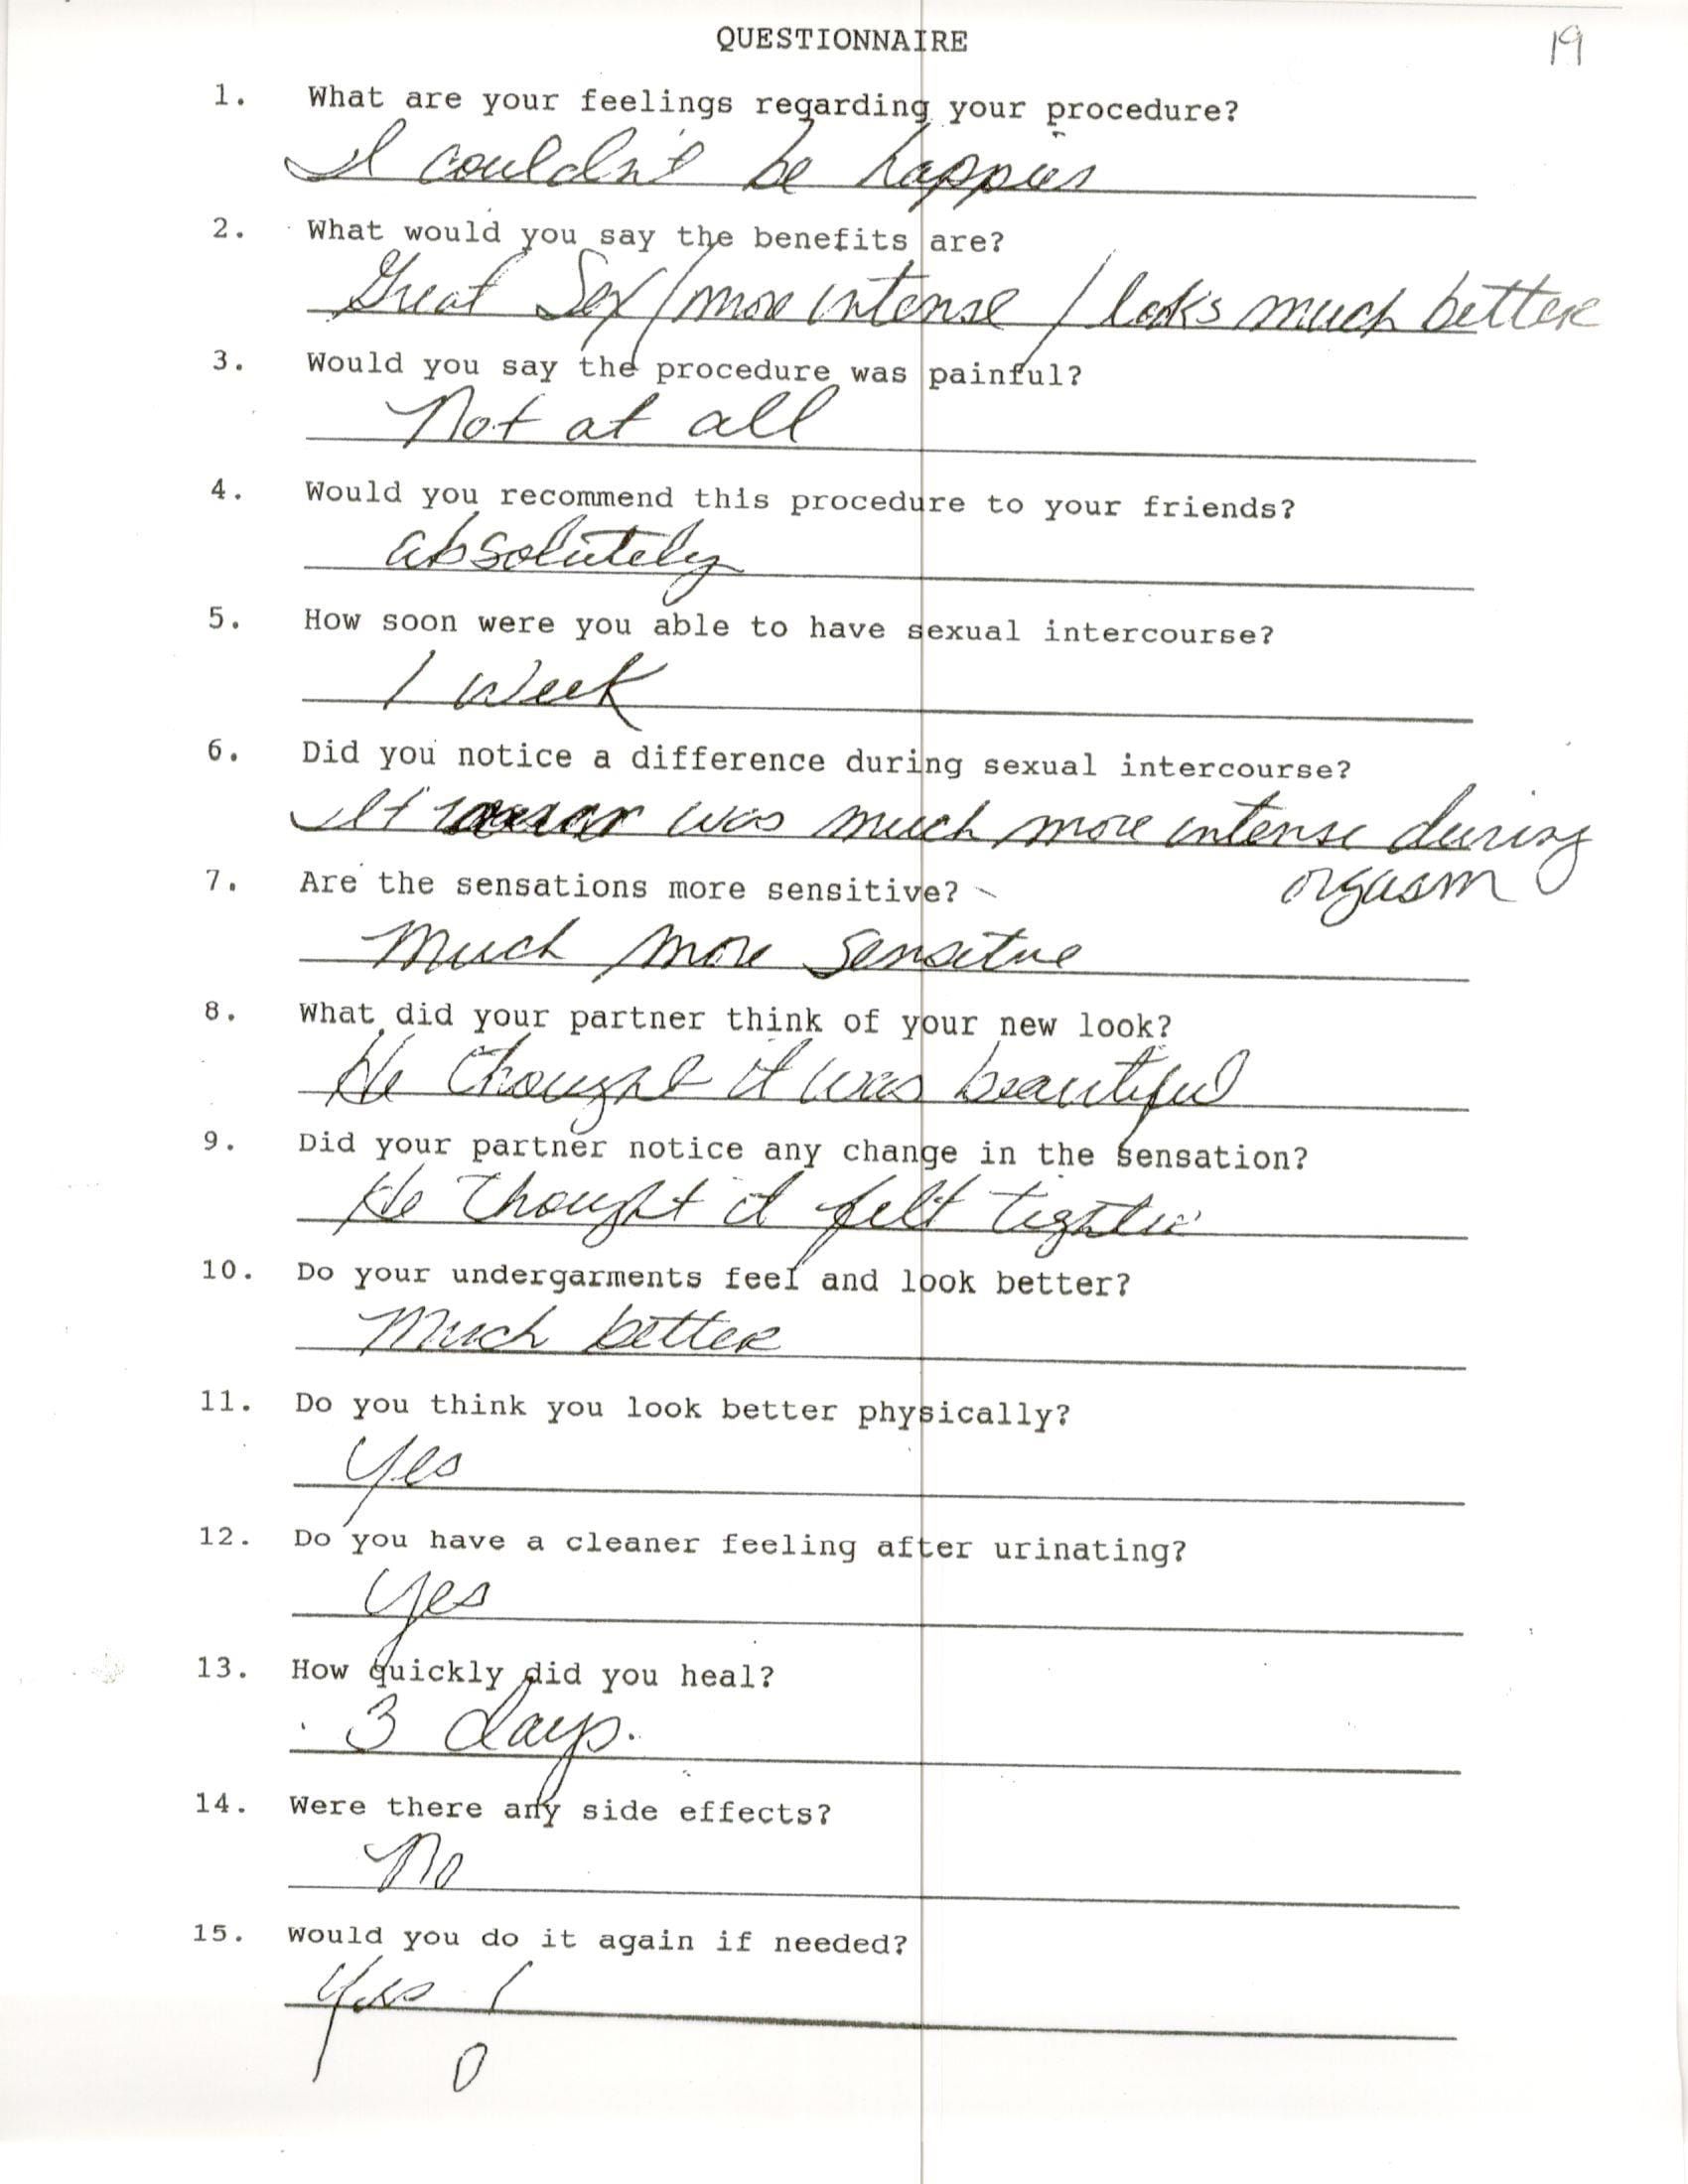 QUESTIONNAIRE
19
1. What are your feelings regarding your procedure?
I couldn't be happier
2. What would you say the benefits are?
Great Sex/more intense / looks much better
3. Would you say the procedure was painful?
Not at all
4. Would you recommend this procedure to your friends?
absolutely
5. How soon were you able to have sexual intercourse?
1 Week
6. Did you notice a difference during sexual intercourse?
It was much more intense during
orgasm
7. Are the sensations more sensitive?
Much more sensitive
8. What did your partner think of your new look?
He thought it was beautiful
9. Did your partner notice any change in the sensation?
He thought it felt tighter
10. Do your undergarments feel and look better?
Much better
11. Do you think you look better physically?
Yes
12. Do you have a cleaner feeling after urinating?
Yes
13. How quickly did you heal?
3 days.
14. Were there any side effects?
No
15. Would you do it again if needed?
Yes!